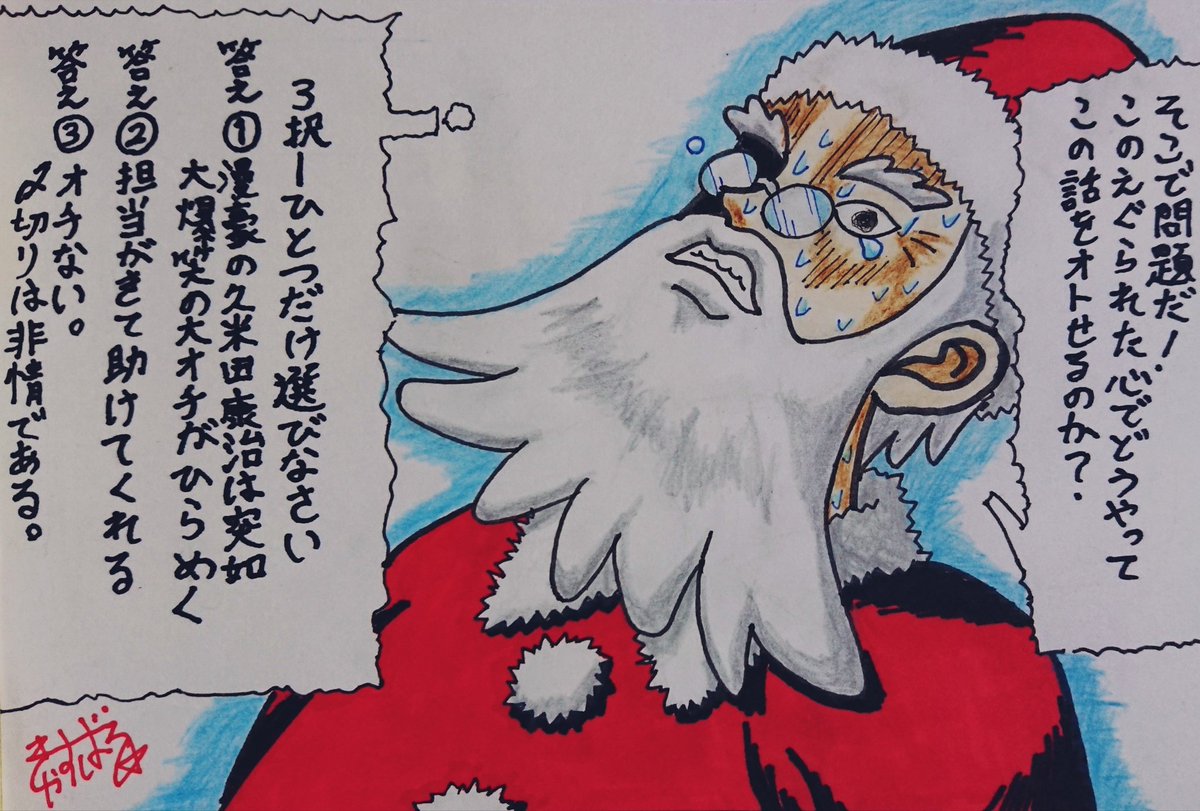 そこで問題だ!
このえぐられた心でどうやって
この話をオトせるのか?
3択ーひとつだけ選びなさい
答え①漫豪の久米田康治は突如
大爆笑の大オチがひらめく
答え②担当がきて助けてくれる
答え③オチない。
〆切りは非情である。